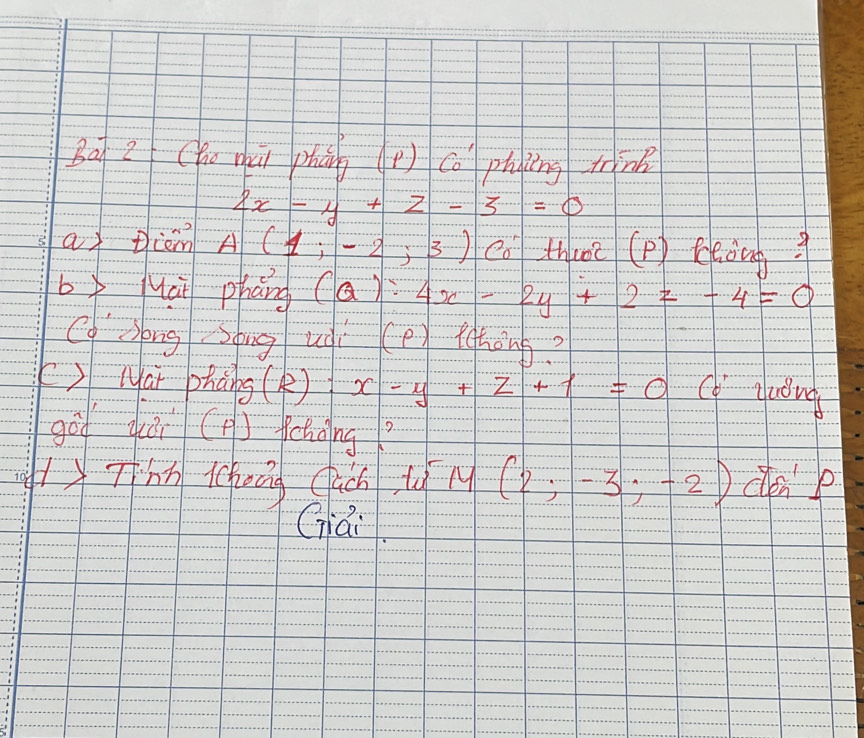 Bài 2: Cho mặt phẳng (P) có phương trình
2x - y + z - 3 = 0
a) Điểm A (1; -2; 3) có thuộc (P) không?
b) Mặt phẳng (Q): 4x - 2y + 2z - 4 = 0
Có song song với (P) không?
c) Mặt phẳng (R): x - y + z + 1 = 0 có vuông
góc với (P) không?
d) Tính khoảng cách từ M (2; -3; -2) đến P
Giải.